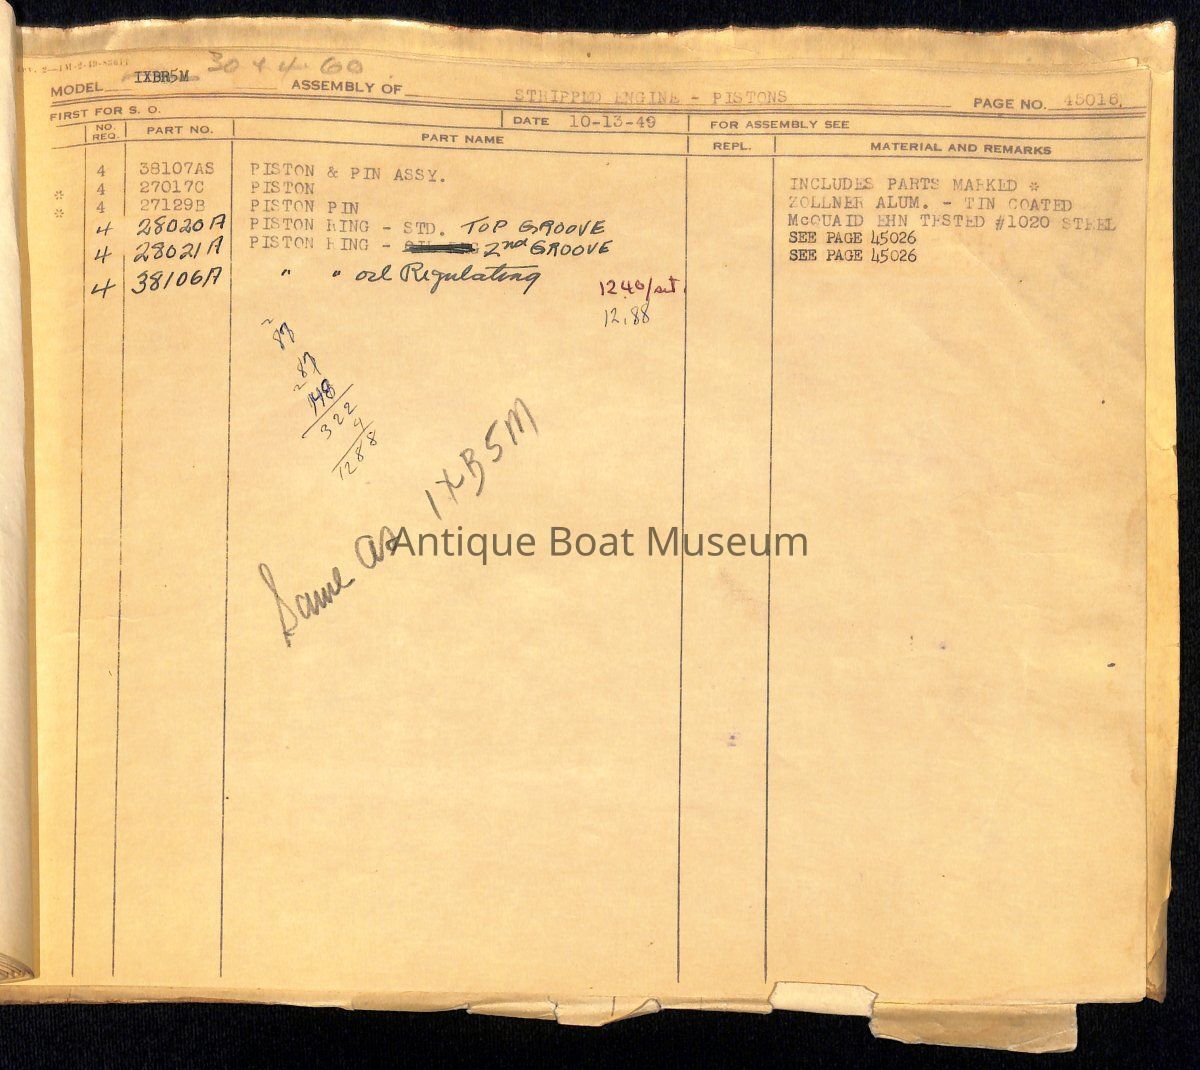 MODEL IXBR5M 30 + 4 - 60 ASSEMBLY OF STRIPPED ENGINE - PISTONS PAGE NO. 45016
FIRST FOR S. O. DATE 10-13-49 FOR ASSEMBLY SEE
NO. REQ. PART NO. PART NAME REPL. MATERIAL AND REMARKS
4 38107AS PISTON & PIN ASSY. INCLUDES PARTS MARKED *
* 4 27017C PISTON ZOLLNER ALUM. - TIN COATED
* 4 27129B PISTON PIN McQUAID EHN TESTED #1020 STEEL
4 28020A PISTON RING - STD. TOP GROOVE SEE PAGE 45026
4 28021A PISTON RING - 2nd GROOVE SEE PAGE 45026
4 38106A " " oil Regulating 1240/set.
12.88
87
87
148
322
4
1288
Same as IXB5M
Antique Boat Museum